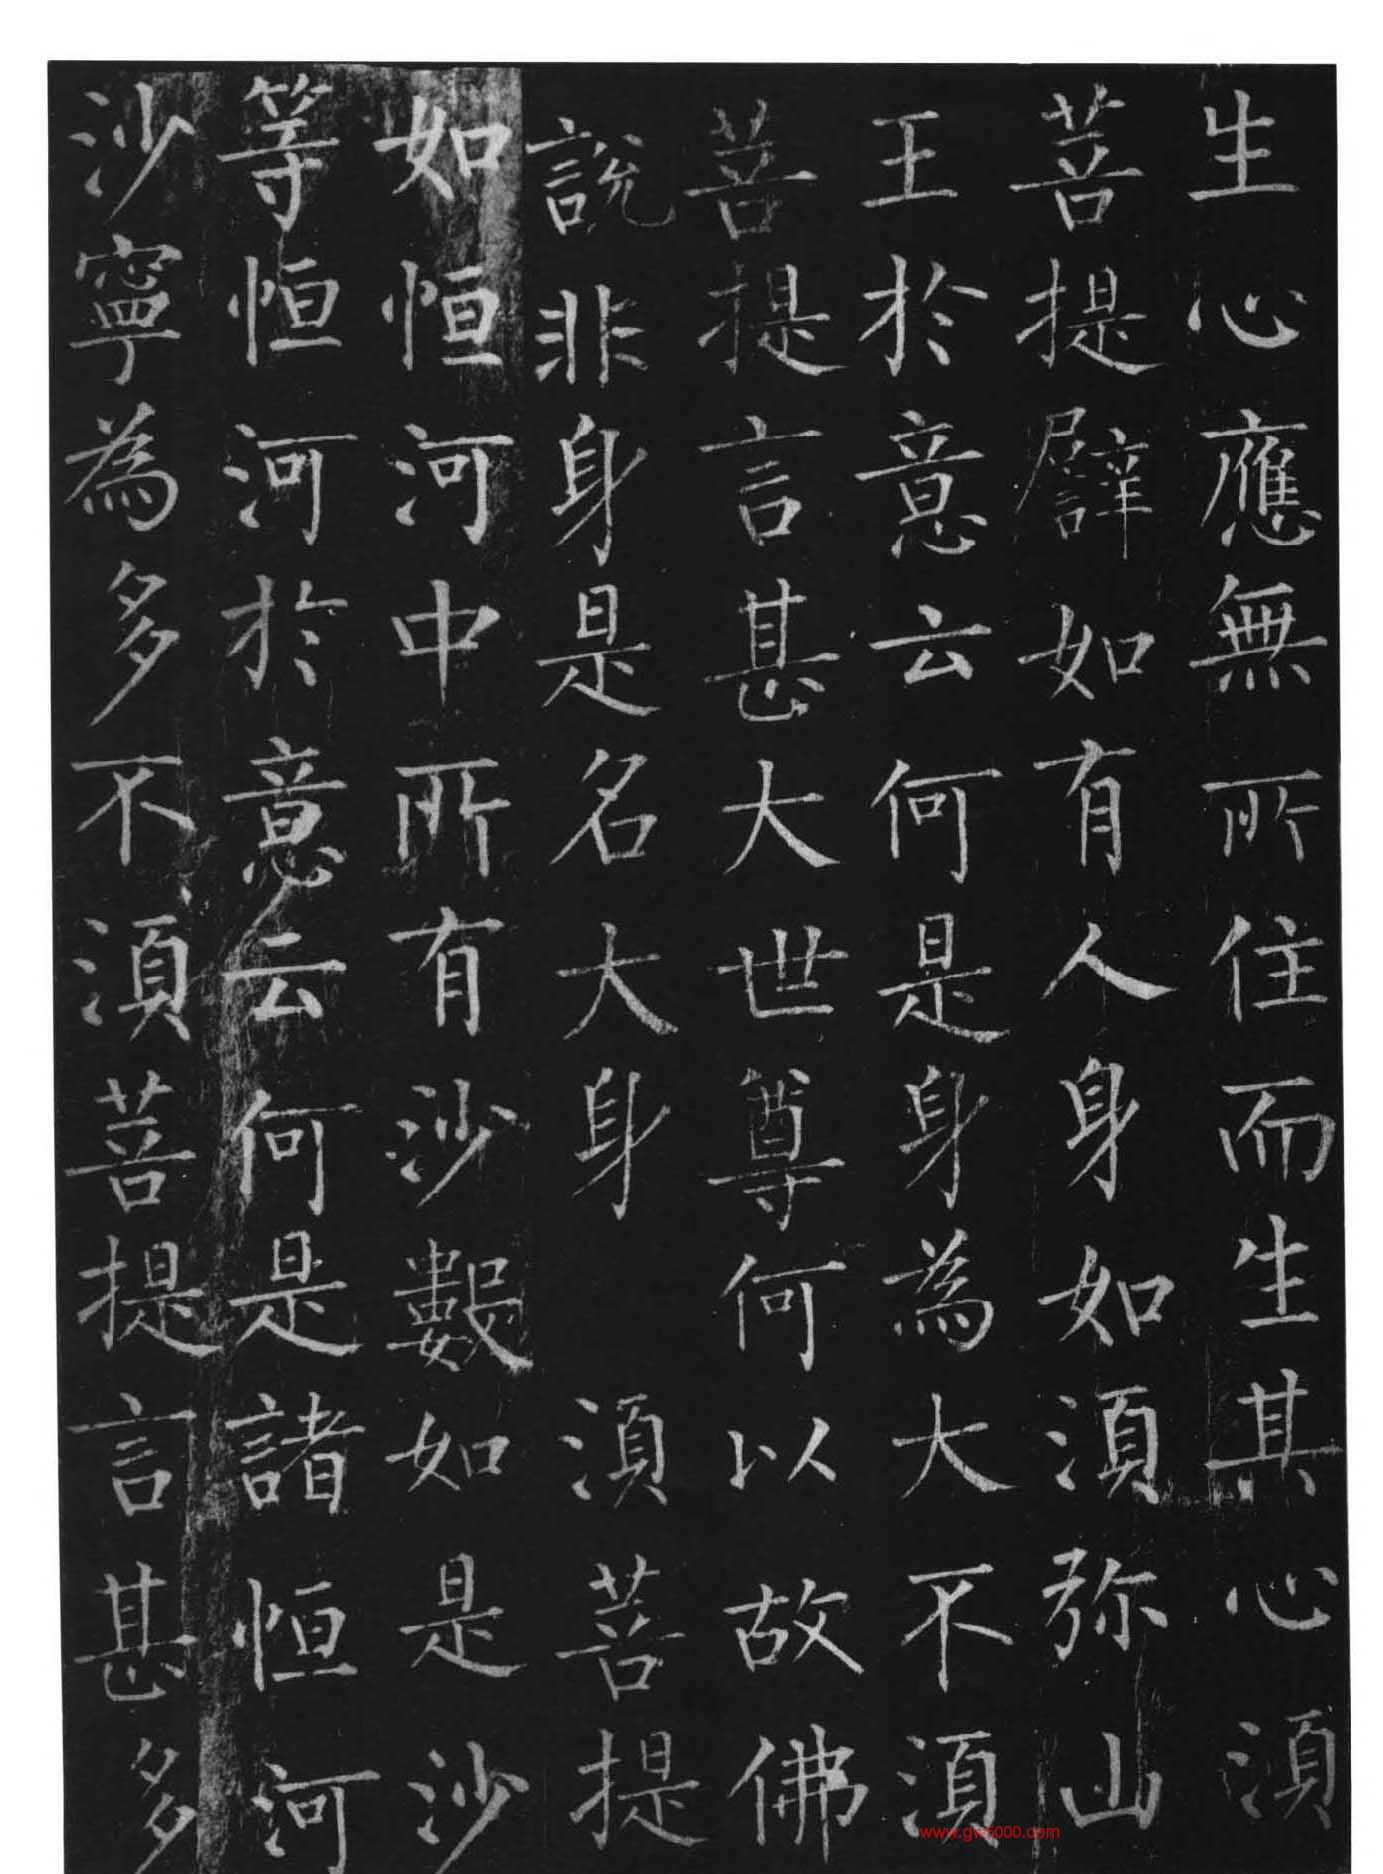 生心應無所住而生其心湏
菩提譬如有人身如湏弥山
王於意云何是身為大不湏
菩提言甚大世尊何以故佛
說非身是名大身 湏菩提
如恒河中所有沙數如是沙
等恒河於意云何是諸恒河
沙寧為多不湏菩提言甚多